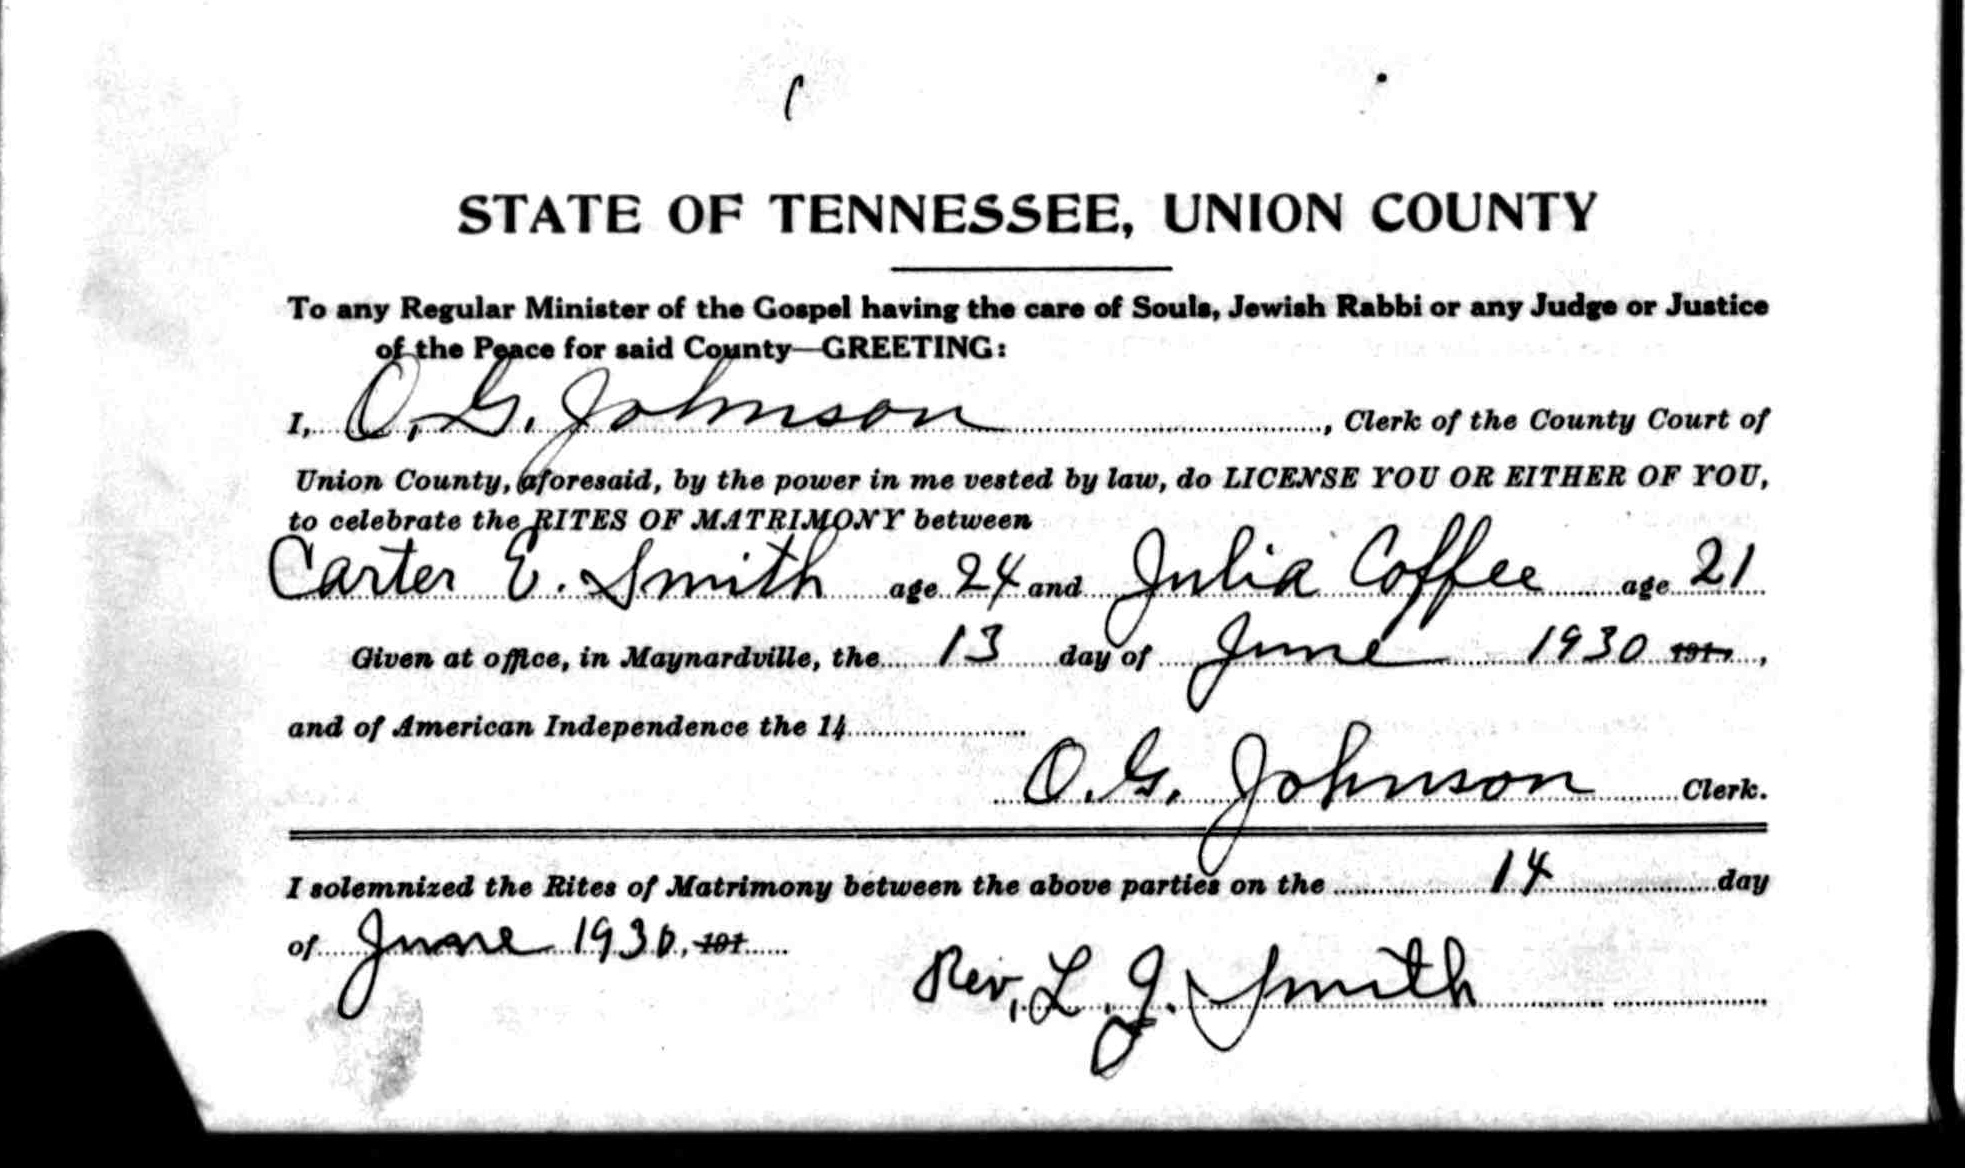 STATE OF TENNESSEE, UNION COUNTY
To any Regular Minister of the Gospel having the care of Souls, Jewish Rabbi or any Judge or Justice
of the Peace for said County—GREETING:
I, O. G. Johnson, Clerk of the County Court of
Union County, aforesaid, by the power in me vested by law, do LICENSE YOU OR EITHER OF YOU,
to celebrate the RITES OF MATRIMONY between
Carter E. Smith age 24 and Julia Coffee age 21
Given at office, in Maynardville, the 13 day of June 1930 191,
and of American Independence the 14
O. G. Johnson Clerk.
I solemnized the Rites of Matrimony between the above parties on the 14 day
of June 1930, 191
Rev. L. J. Smith